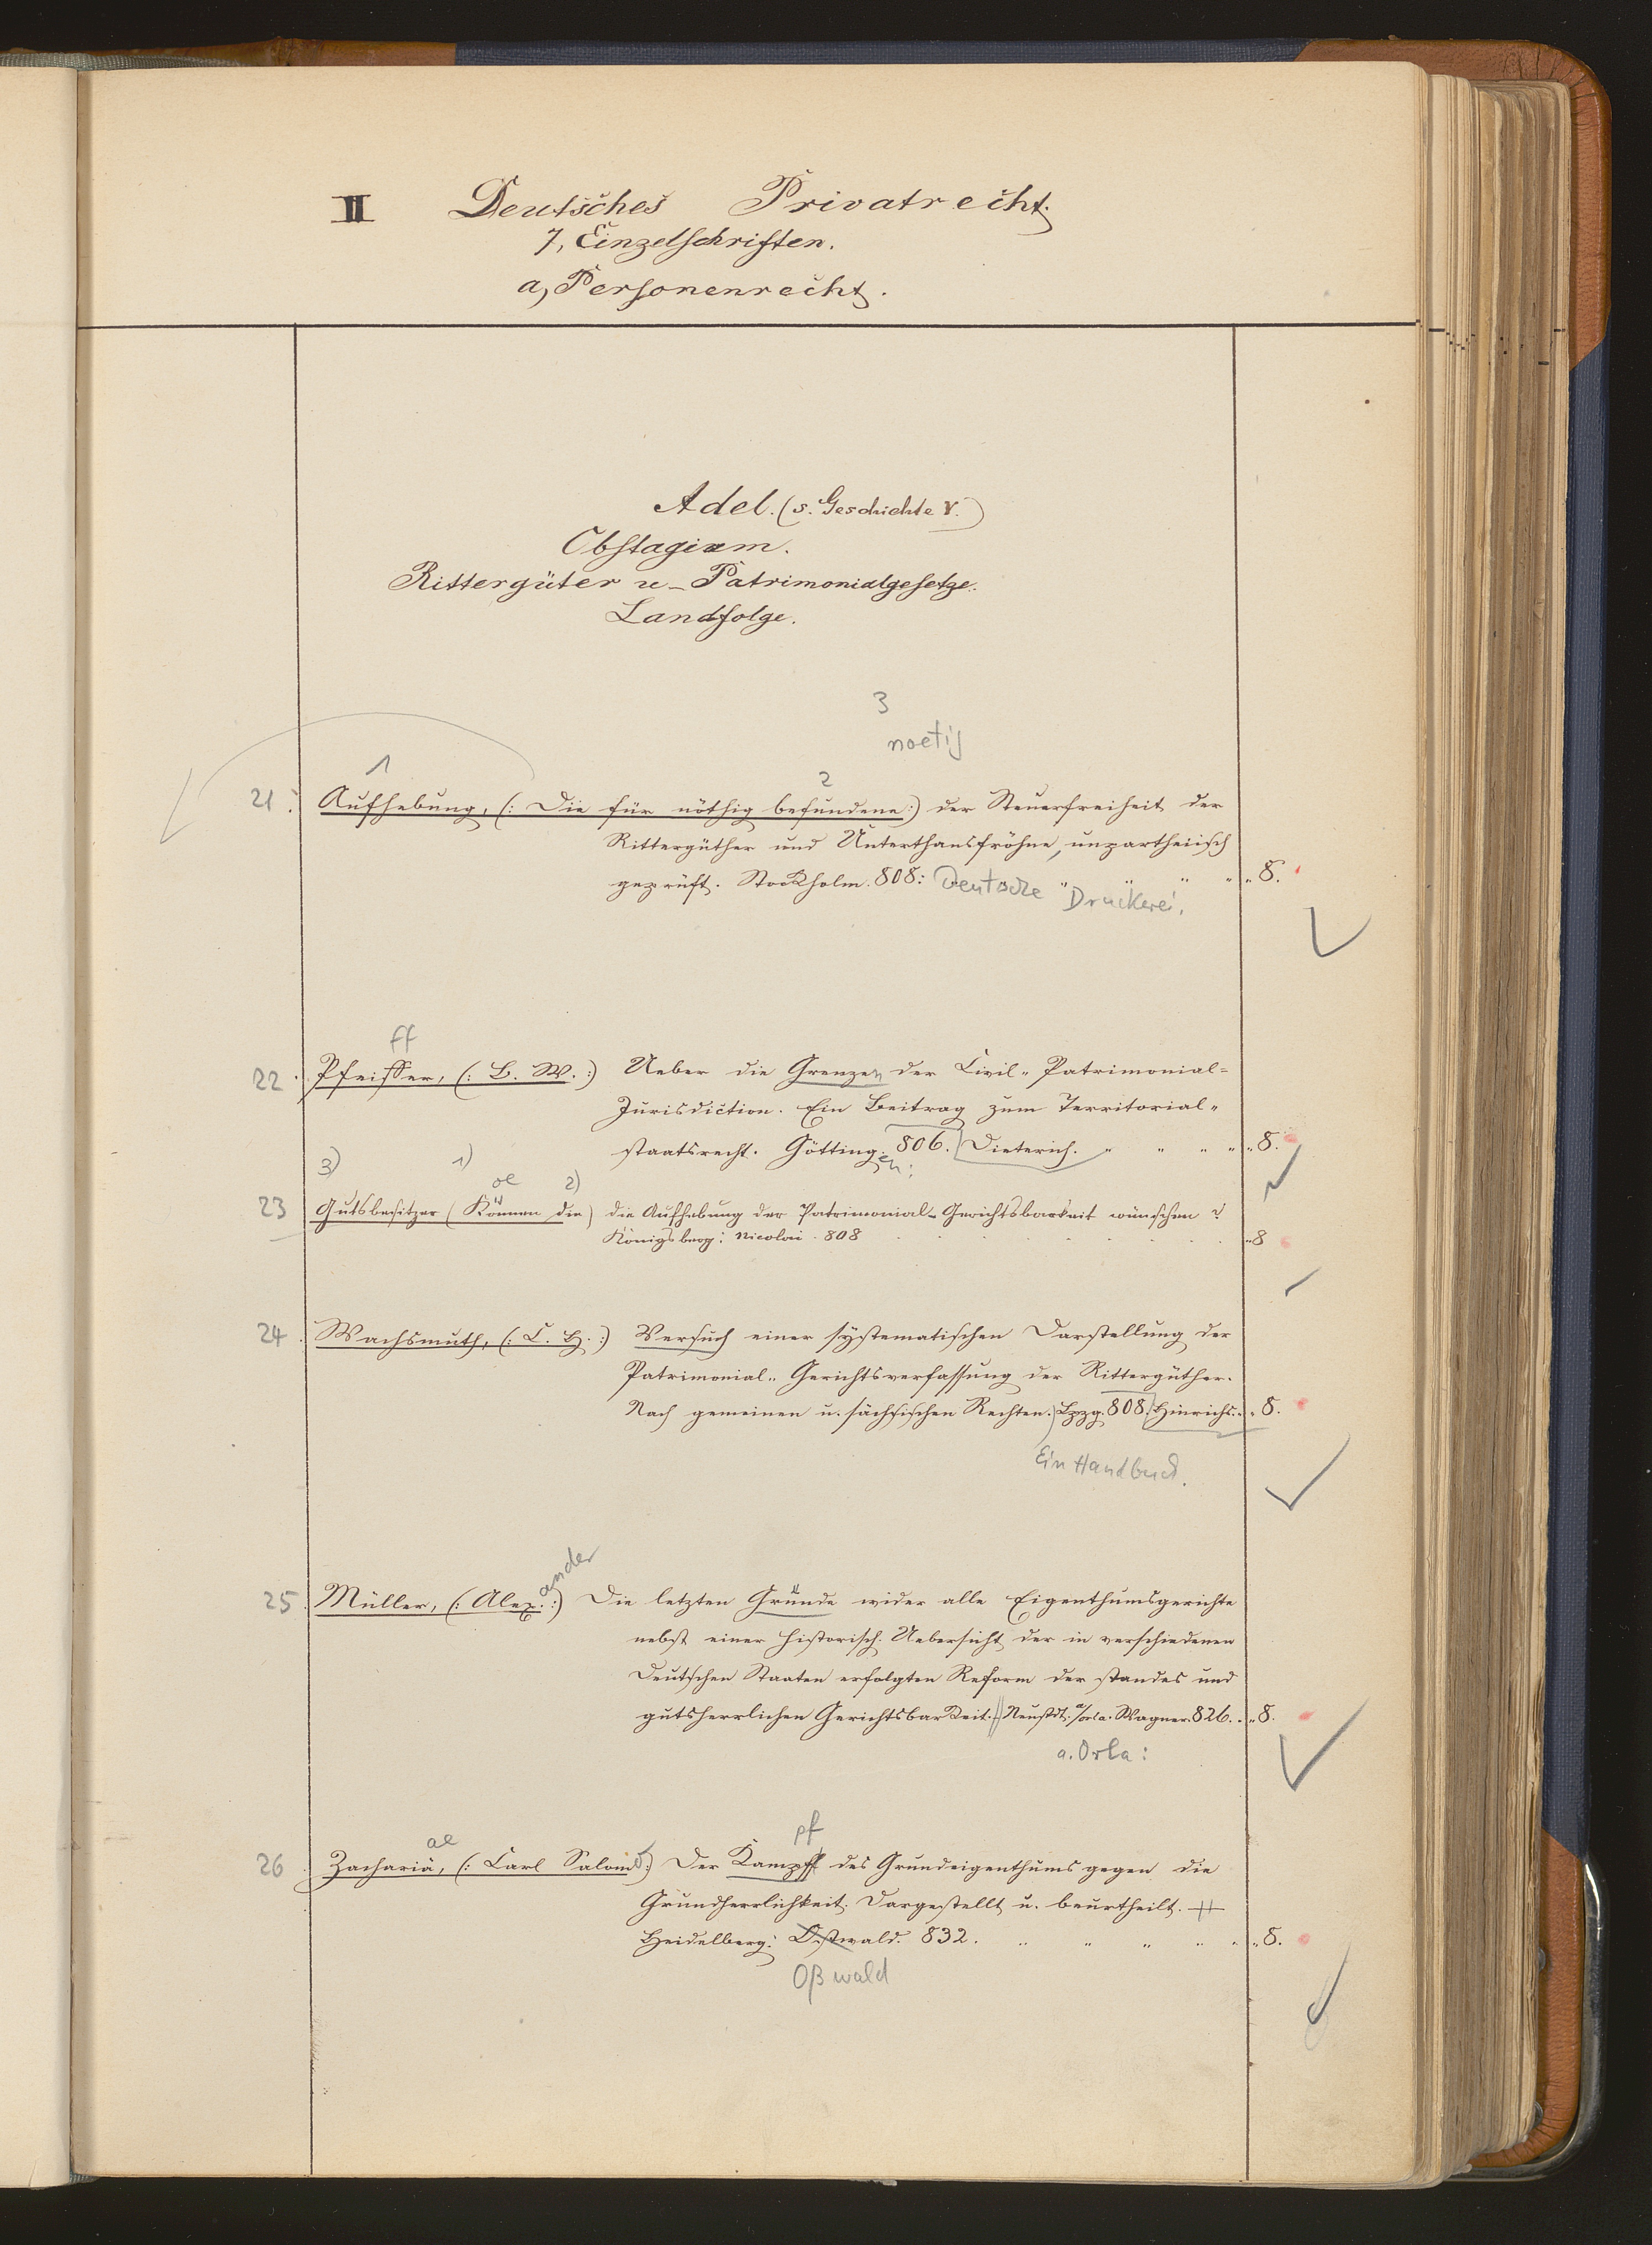 II Deutsches Privatrecht.
7, Einzelschriften.
a, Personenrecht.
Adel. (s. Geschichte V.)
Obstagium.
Rittergüter u. Patrimonialgesetze.
Landfolge.
3
noetig
1
2
21. Aufhebung, (: Die für nöthig befundene:) der Steuerfreiheit der
Rittergüther und Unterthansfröhne, unpartheiisch
geprüft. Stockholm. 808: Deutsche Druckerei. " " " " 8.
ff
22. Pfeiffer, (: B. W. :) Ueber die Grenzen der Civil-Patrimonial-
Jurisdiction. Ein Beitrag zum Territorial-
staatsrecht. Götting. 806. Dieterich. " " " " " 8.
en:
3) 1) oe 2)
23 Gutsbesitzer (Können die) die Aufhebung der Patrimonial-Gerichtsbarkeit wünschen?
Königsberg: Nicolovi. 808 . . . . . . . " 8
24. Wachsmuth, (: C. H. :) Versuch einer systematischen Darstellung der
Patrimonial-Gerichtsverfassung der Rittergüther.
Nach gemeinen u. sächsischen Rechten. Lpzg. 808. Hinrichs. " 8.
Ein Handbuch.
ander
25. Müller, (: Alex. :) Die letzten Gründe wider alle Eigenthumsgerichte
nebst einer historisch. Uebersicht der in verschiedenen
Deutschen Staaten erfolgten Reform der standes und
gutsherrlichen Gerichtsbarkeit. Neustdt. a/orla. Wagner. 826. " 8.
a. Orla:
ae pf
26. Zachariä, (: Carl Salomo:) Der Kampff des Grundeigenthums gegen die
Grundherrlichkeit. Dargestellt u. beurtheilt.
Heidelberg: Ostwald. 832. " " " " " 8.
Oßwald